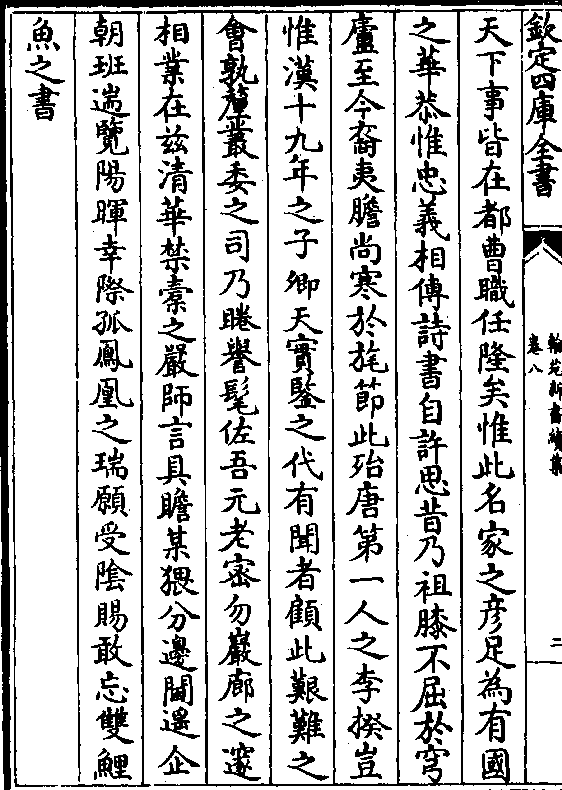 欽定四庫全書
翰苑新書續集
卷八
二
天下事皆在都曹職任隆矣惟此名家之彦足為有國
之華恭惟忠義相傳詩書自許思昔乃祖膝不屈於穹
廬至今裔夷膽尚寒於旄節此殆唐第一人之李揆豈
惟漢十九年之子卿天實鑒之代有聞者顧此艱難之
會孰釐叢委之司乃睠譽髦佐吾元老密勿巖廊之邃
相業在兹清華禁橐之嚴師言具瞻某猥分邊閫遥企
朝班遄覽陽暉幸際孤鳳凰之瑞願受陰賜敢忘雙鯉
魚之書